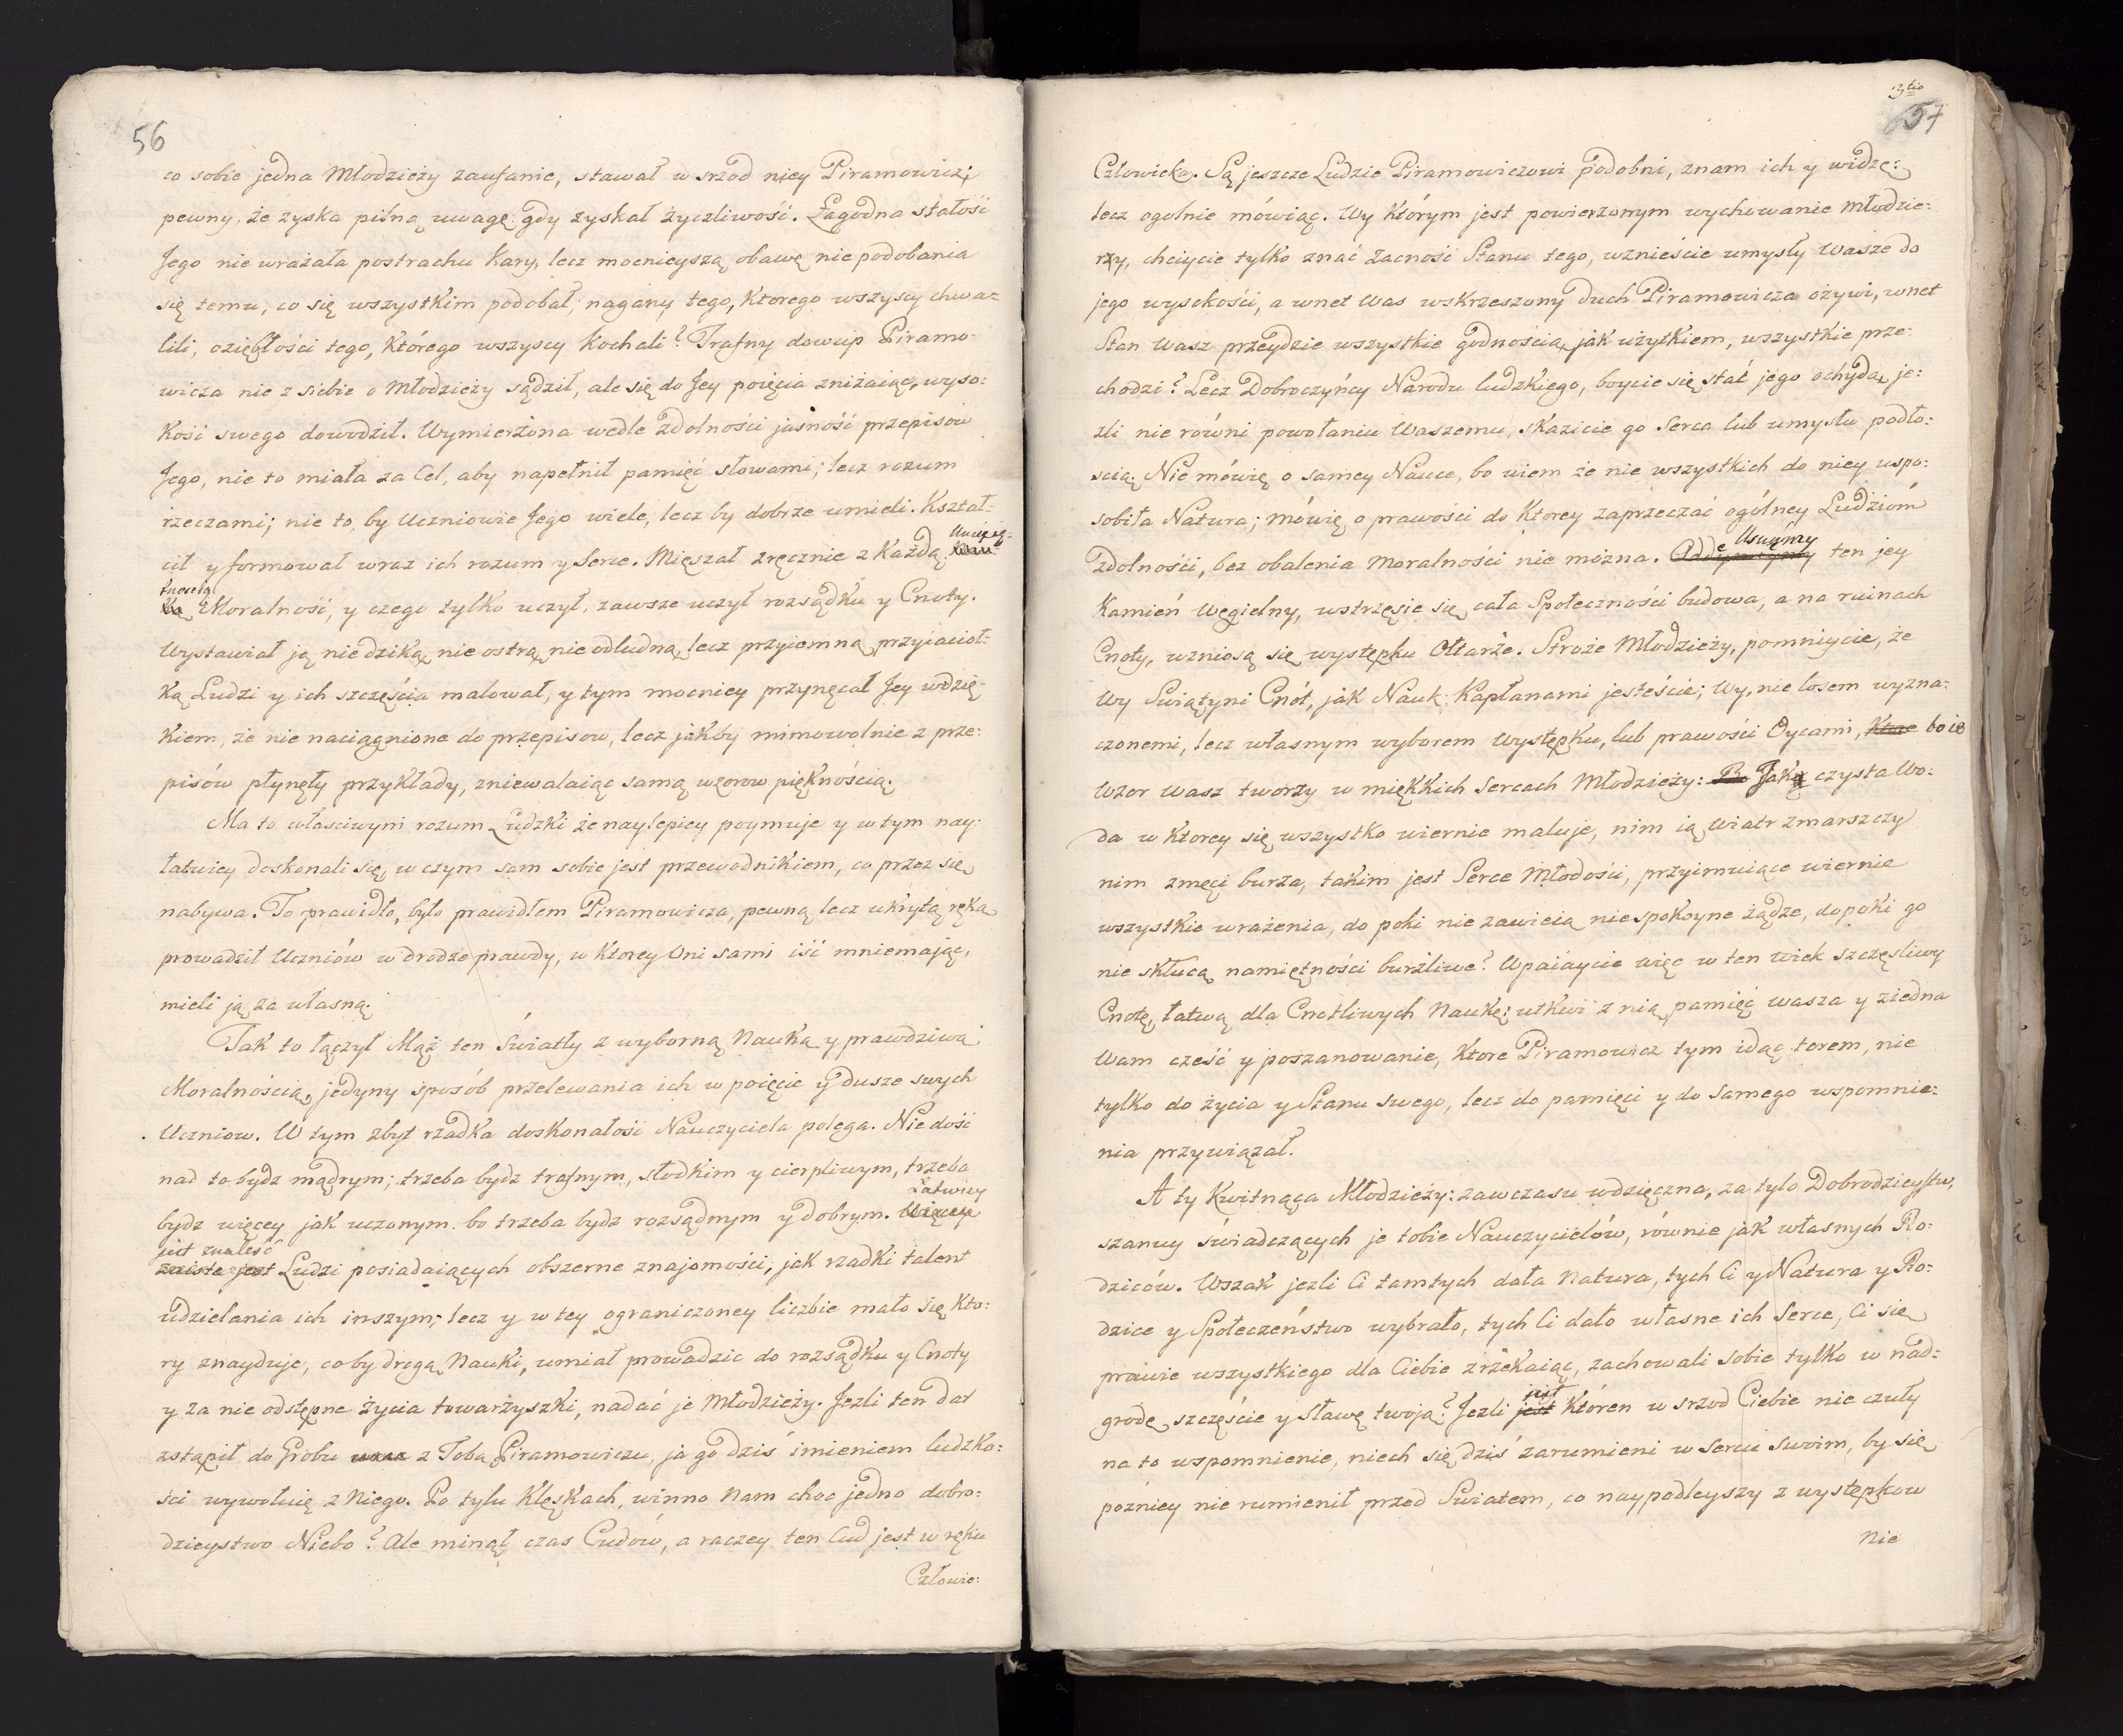 56
co sobie jedna Młodzieży zaufanie, stawał w srzod niey Piramowicz;
pewny, że zyska pilną uwagę gdy zyskał życzliwość. Łagodna stałość
Jego nie wrażała postrachu Kary, lecz mocnieyszą obawę nie podobania
się temu, co się wszystkim podobał; nagany tego, Ktorego wszyscy chwa=
lili, oziębłości tego, Którego wszyscy Kochali? Trafny dowcip Piramo-
wicza nie z siebie o Młodzieży sądził, ale się do Jey poięcia zniżaiąc, wyso:
Kość swego dowodził. Wymierżona wedle zdolności jasność przepisow
Jego, nie to miała za Cel, aby napełnił pamięć słowami; lecz rozum
rzeczami; nie to by Uczniowie Jego wiele, lecz by dobrze umieli. Kształ-
cił y formował wraz ich rozum y Serce. Mięszał zręcznie z Każdą Umieję-
tnością Moralność, y czego tylko uczył, zawsze uczył rozsądku y Cnoty.
Wystawiał ją nie dziką, nie ostrą, nie odludną, lecz przyiemną, przyiacioł-
Ką Ludzi y ich szczęścia malował, y tym mocniey przynęcał Jey wdzię-
Kiem, że nie naciągnione do przepisow, lecz jakby mimowolnie z prze:
pisów płynęły przykłady, zniewalaiąc samą wzorow pięknością.
Ma to własciwym rozum Ludzki że naylepiey poymuje y w tym nay-
łatwiey doskonali się, w czym sam sobie jest przewodnikiem, co przez się
nabywa. To prawidło, było prawidłem Piramowicza, pewną lecz ukrytą ręką
prowadził Uczniów w drodze prawdy, w Ktorey Oni sami iść mniemając,
mieli ją za własną.
Tak to łączył Mąż ten Światły z wyborną Nauką y prawdziwą
Moralnością, jedyny sposób przelewania ich w poięcie y dusze swych
Uczniow. W tym zbyt rzadka doskonałość Nauczyciela polega. Nie dość
nad to bydz mądrym; trzeba bydz trafnym, słodkim y cierpliwym, trzeba
bydz więcey jak uczonym. bo trzeba bydz rozsądnym y dobrym. Łatwiey
jest znaleść Ludzi posiadaiących obszerne znajomości, jak rzadki talent
udzielania ich inszym; lecz y w tey ograniczoney liczbie mało się Kto:
ry znayduje, coby drogą Nauki, umiał prowadzic do rozsądku y Cnoty
y za nie odstępne życia towarzyszki, nadać je Młodzieży. Jezli ten dar
zstąpił do Grobu wraz z Tobą Piramowiczu, ja go dziś imieniem ludzko:
ści wywołuię z Niego. Po tylu Klęskach, winno Nam choc jedno dobro:
dzieystwo Niebo? Ale minął czas Cudów, a raczey ten Cud jest w ręku
Człowie:
3tio
57
Człowieka. Są jeszcze Ludzie Piramowiczowi podobni, znam ich y widzę:
lecz ogolnie mówiąc. Wy Którym jest powierzonym wychowanie Młodzie:
rzy, chciycie tylko znać Zacność Stanu tego, wznieście umysły Wasze do
jego wysokości, a wnet Was wskrzeszony duch Piramowicza ożywi, wnet
Stan Wasz przeydzie wszystkie godnością, jak użytkiem, wszystkie prze-
chodzi? Lecz Dobroczyńcy Narodu ludzkiego, boycie się stać jego ochydą, je:
zli nie równi powołaniu Waszemu, skazicie go Serca lub umysłu podło:
scią. Nie mówię o samey Nauce, bo wiem że nie wszystkich do niey uspo:
sobiła Natura; mówię o prawości do Ktorey zaprzeczać ogólney Ludziom
zdolności, bez obalenia Moralności nie można. Usuńmy ten jey
Kamień Węgielny, wstrzęsie się cała Społeczności budowa, a na ruinach
Cnoty, wzniosą się występku Ołtarże. Stroże Młodzieży, pomniycie, że
Wy Swiątyni Cnót, jak Nauk Kapłanami jesteście; Wy, nie losem wyzna:
czonemi, lecz własnym wyborem Występku, lub prawości Oycami, bo ie
Wzor Wasz tworzy w miękkich Sercach Młodzieży: Jak czysta Wo:
da w Ktorey się wszystko wiernie maluje, nim ią Wiatr zmarszczy
nim zmęci burza, takim jest Serce Młodości, przyimuiące wiernie
wszystkie wrażenia, do poki nie zawieią niespokoyne żądze, dopoki go
nie skłucą namiętności burżliwe? Wpaiaycie więc w ten wiek szczęsliwy
Cnotę, łatwą dla Cnotliwych Naukę; utkwi z nią pamięć wasza y ziedna
Wam cześć y poszanowanie, Ktore Piramowicz tym idąc torem, nie
tylko do życia y Stanu swego, lecz do pamięci y do samego wspomnie:
nia przywiązał.
A ty Kwitnąca Młodzieży: zawczasu wdzięczna, za tylo Dobrodzieystw,
szanuy świadczących je tobie Nauczycielów, równie jak własnych Ro:
dziców. Wszak jezli Ci tamtych dała Natura, tych Ci y Natura y Ro:
dzice y Społeczeństwo wybrało, tych Ci dało własne ich Serce, Ci się
prawie wszystkiego dla Ciebie zrzekaiąc, zachowali sobie tylko w nad=
grodę szczęście y sławę twoją? Jezli jest Któren w srzod Ciebie nie czuły
na to wspomnienie, niech się dziś zarumieni w Sercu Swoim, by się
pozniey nie rumienił przed Swiatem, co naypodleyszy z występkow
Nie